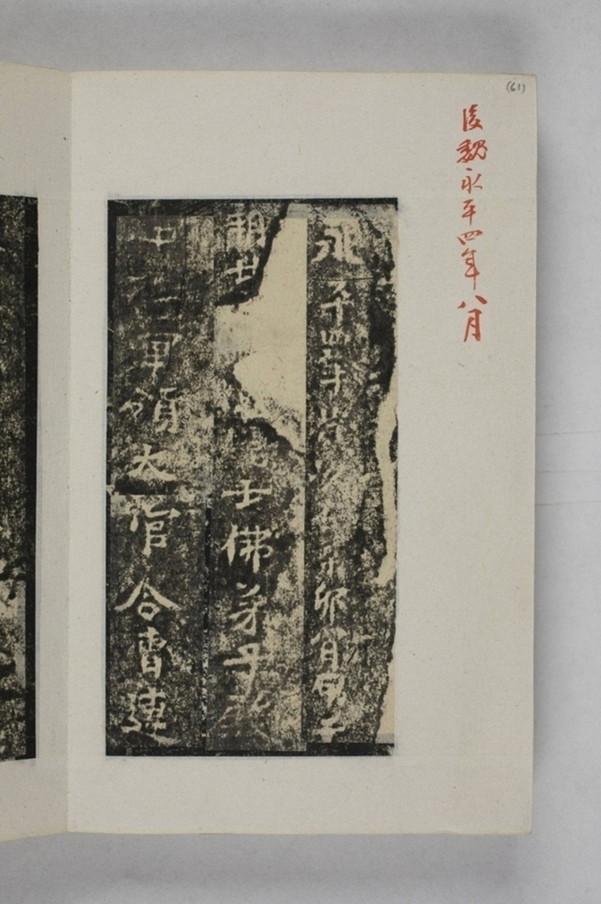 (61)
後魏永平四年八月
永平四年歲次辛卯八月甲子
朔廿 清信士佛弟子
中 軍領太官令曹連